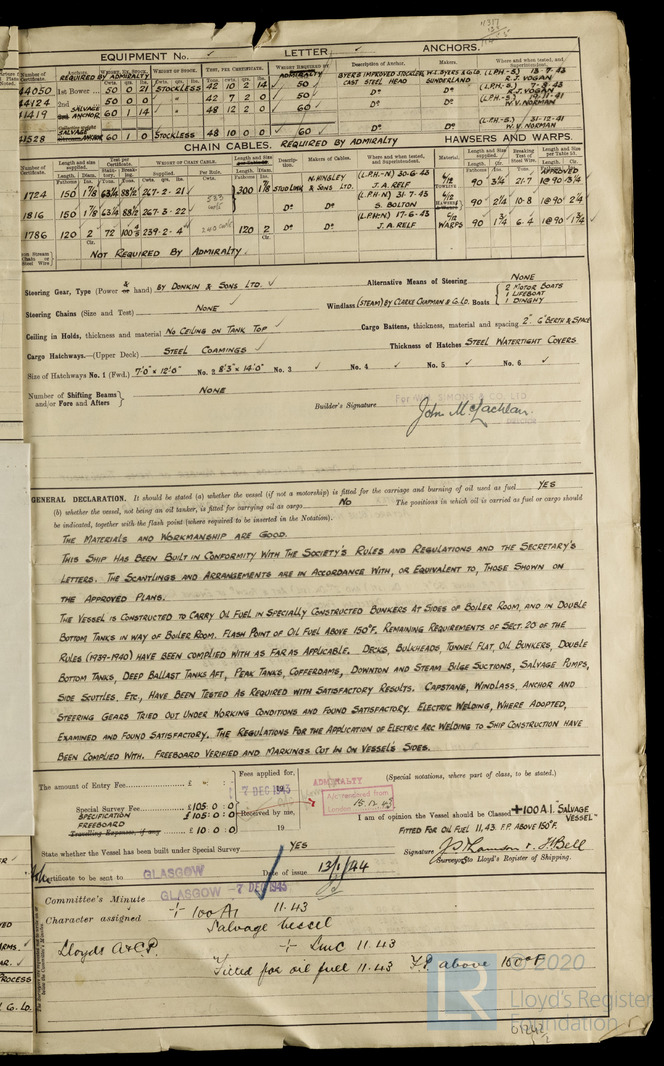 EQUIPMENT No. LETTER ANCHORS.
Number of Certificate. Anchors. REQUIRED BY ADMIRALTY WEIGHT OF STOCK. TEST, PER CERTIFICATE. WEIGHT REQUIRED BY ADMIRALTY Description of Anchor. Makers. Where and when tested, and Superintendent.
44050 1st Bower 50 0 21 STOCKLESS 42 10 2 14 50 BYERS IMPROVED STOCKLESS CAST STEEL HEAD W.L. BYERS & Co. LD. SUNDERLAND (L.P.H-S.) 13-7-43 R.J. VOGAN
44124 2nd 50 0 0 " 42 7 2 0 50 Do Do (L.P.H-S.) R.J. VOGAN
41419 SALVAGE ANCHOR 60 1 14 " 48 12 2 0 60 Do Do (L.P.H-S.) W.V. NORMAN
41528 SALVAGE ANCHOR 60 1 0 STOCKLESS 48 10 0 0 60 Do Do (L.P.H-S.) 31-12-41 W.V. NORMAN
CHAIN CABLES. REQUIRED BY ADMIRALTY HAWSERS AND WARPS.
Number of Certificate. Length and size supplied. Test per Certificate. WEIGHT OF CHAIN CABLE. Length and Size Description. Makers of Cables. Where and when tested, and Superintendent. Material. Length and Size supplied. Breaking Test of Steel Wire. Length and size per Table 51. APPROVED
1724 150 1 7/8 63 1/4 88 1/2 267-2-21 300 1 7/8 STUD LINK N. HINGLEY & SONS LTD. (L.P.H-N) 30-6-43 J.A. RELF 6/12 TOWLINE 90 3 1/4 21·7 1@90 3 1/4
1816 150 1 7/8 63 1/4 88 1/2 267-3-22 Do Do (L.P.H-N) 31-7-43 S. BOLTON 6/12 HAWSERS 90 2 1/4 10·8 1@90 2 1/4
1786 120 2 72 100 8 239-2-4 120 2 Do Do (L.P.H-N) 17-6-43 J.A. RELF 6/12 WARPS 90 1 3/4 6·4 1@90 1 3/4
NOT REQUIRED BY ADMIRALTY
Steering Gear, Type (Power & hand) BY DONKIN & SONS LTD. Alternative Means of Steering NONE
Steering Chains (Size and Test) NONE Windlass (STEAM) BY CLARKE CHAPMAN & Co. LD. Boats { 2 MOTOR BOATS 1 LIFEBOAT 1 DINGHY
Ceiling in Holds, thickness and material NO CEILING ON TANK TOP Cargo Battens, thickness, material and spacing 2" 6" BERTH & SPACE
Cargo Hatchways.—(Upper Deck) STEEL COAMINGS Thickness of Hatches STEEL WATERTIGHT COVERS
Size of Hatchways No. 1 (Fwd.) 7'0" x 12'0" No. 2 8'3" x 14'0" No. 3 No. 4 No. 5 No. 6
Number of Shifting Beams and/or Fore and Afters } NONE
For WM. SIMONS & CO. LTD
Builder's Signature John McLachlan. DIRECTOR
GENERAL DECLARATION. It should be stated (a) whether the vessel (if not a motorship) is fitted for the carriage and burning of oil used as fuel YES
(b) whether the vessel, not being an oil tanker, is fitted for carrying oil as cargo No The positions in which oil is carried as fuel or cargo should
be indicated, together with the flash point (where required to be inserted in the Notation).
THE MATERIALS AND WORKMANSHIP ARE GOOD.
THIS SHIP HAS BEEN BUILT IN CONFORMITY WITH THE SOCIETY'S RULES AND REGULATIONS AND THE SECRETARY'S
LETTERS. THE SCANTLINGS AND ARRANGEMENTS ARE IN ACCORDANCE WITH, OR EQUIVALENT TO, THOSE SHOWN ON
THE APPROVED PLANS.
THE VESSEL IS CONSTRUCTED TO CARRY OIL FUEL IN SPECIALLY CONSTRUCTED BUNKERS AT SIDES OF BOILER ROOM, AND IN DOUBLE
BOTTOM TANKS IN WAY OF BOILER ROOM. FLASH POINT OF OIL FUEL ABOVE 150°F. REMAINING REQUIREMENTS OF SECT. 20 OF THE
RULES (1939-1940) HAVE BEEN COMPLIED WITH AS FAR AS APPLICABLE. DECKS, BULKHEADS, TUNNEL FLAT, OIL BUNKERS, DOUBLE
BOTTOM TANKS, DEEP BALLAST TANKS AFT, PEAK TANKS, COFFERDAMS, DOWNTON AND STEAM BILGE SUCTIONS, SALVAGE PUMPS,
SIDE SCUTTLES, ETC., HAVE BEEN TESTED AS REQUIRED WITH SATISFACTORY RESULTS. CAPSTANS, WINDLASS, ANCHOR AND
STEERING GEARS TRIED OUT UNDER WORKING CONDITIONS AND FOUND SATISFACTORY. ELECTRIC WELDING, WHERE ADOPTED,
EXAMINED AND FOUND SATISFACTORY. THE REGULATIONS FOR THE APPLICATION OF ELECTRIC ARC WELDING TO SHIP CONSTRUCTION HAVE
BEEN COMPLIED WITH. FREEBOARD VERIFIED AND MARKINGS CUT IN ON VESSEL'S SIDES.
The amount of Entry Fee £ : : Fees applied for, 7 DEC 1943 ADMIRALTY (Special notations, where part of class, to be stated.)
A/c rendered from London 18.12.43
Special Survey Fee £105:0:0 Received by me,
SPECIFICATION £105:0:0
FREEBOARD
Travelling Expenses, if any £10:0:0 19
I am of opinion the Vessel should be Classed +100 A.1. "SALVAGE VESSEL"
FITTED FOR OIL FUEL 11,43 F.P. ABOVE 150°F.
State whether the Vessel has been built under Special Survey YES
Signature J.D. Thomson & F. Bell
Surveyors to Lloyd's Register of Shipping.
Certificate to be sent to GLASGOW Date of issue 13/1/44
Committee's Minute GLASGOW -7 DEC 1943
Character assigned + 100A1 11.43
Salvage Vessel
Lloyds A&CP. + LMC 11.43
Fitted for oil fuel 11.43 F.P. above 150°F
LR © 2020
Lloyd's Register
Foundation